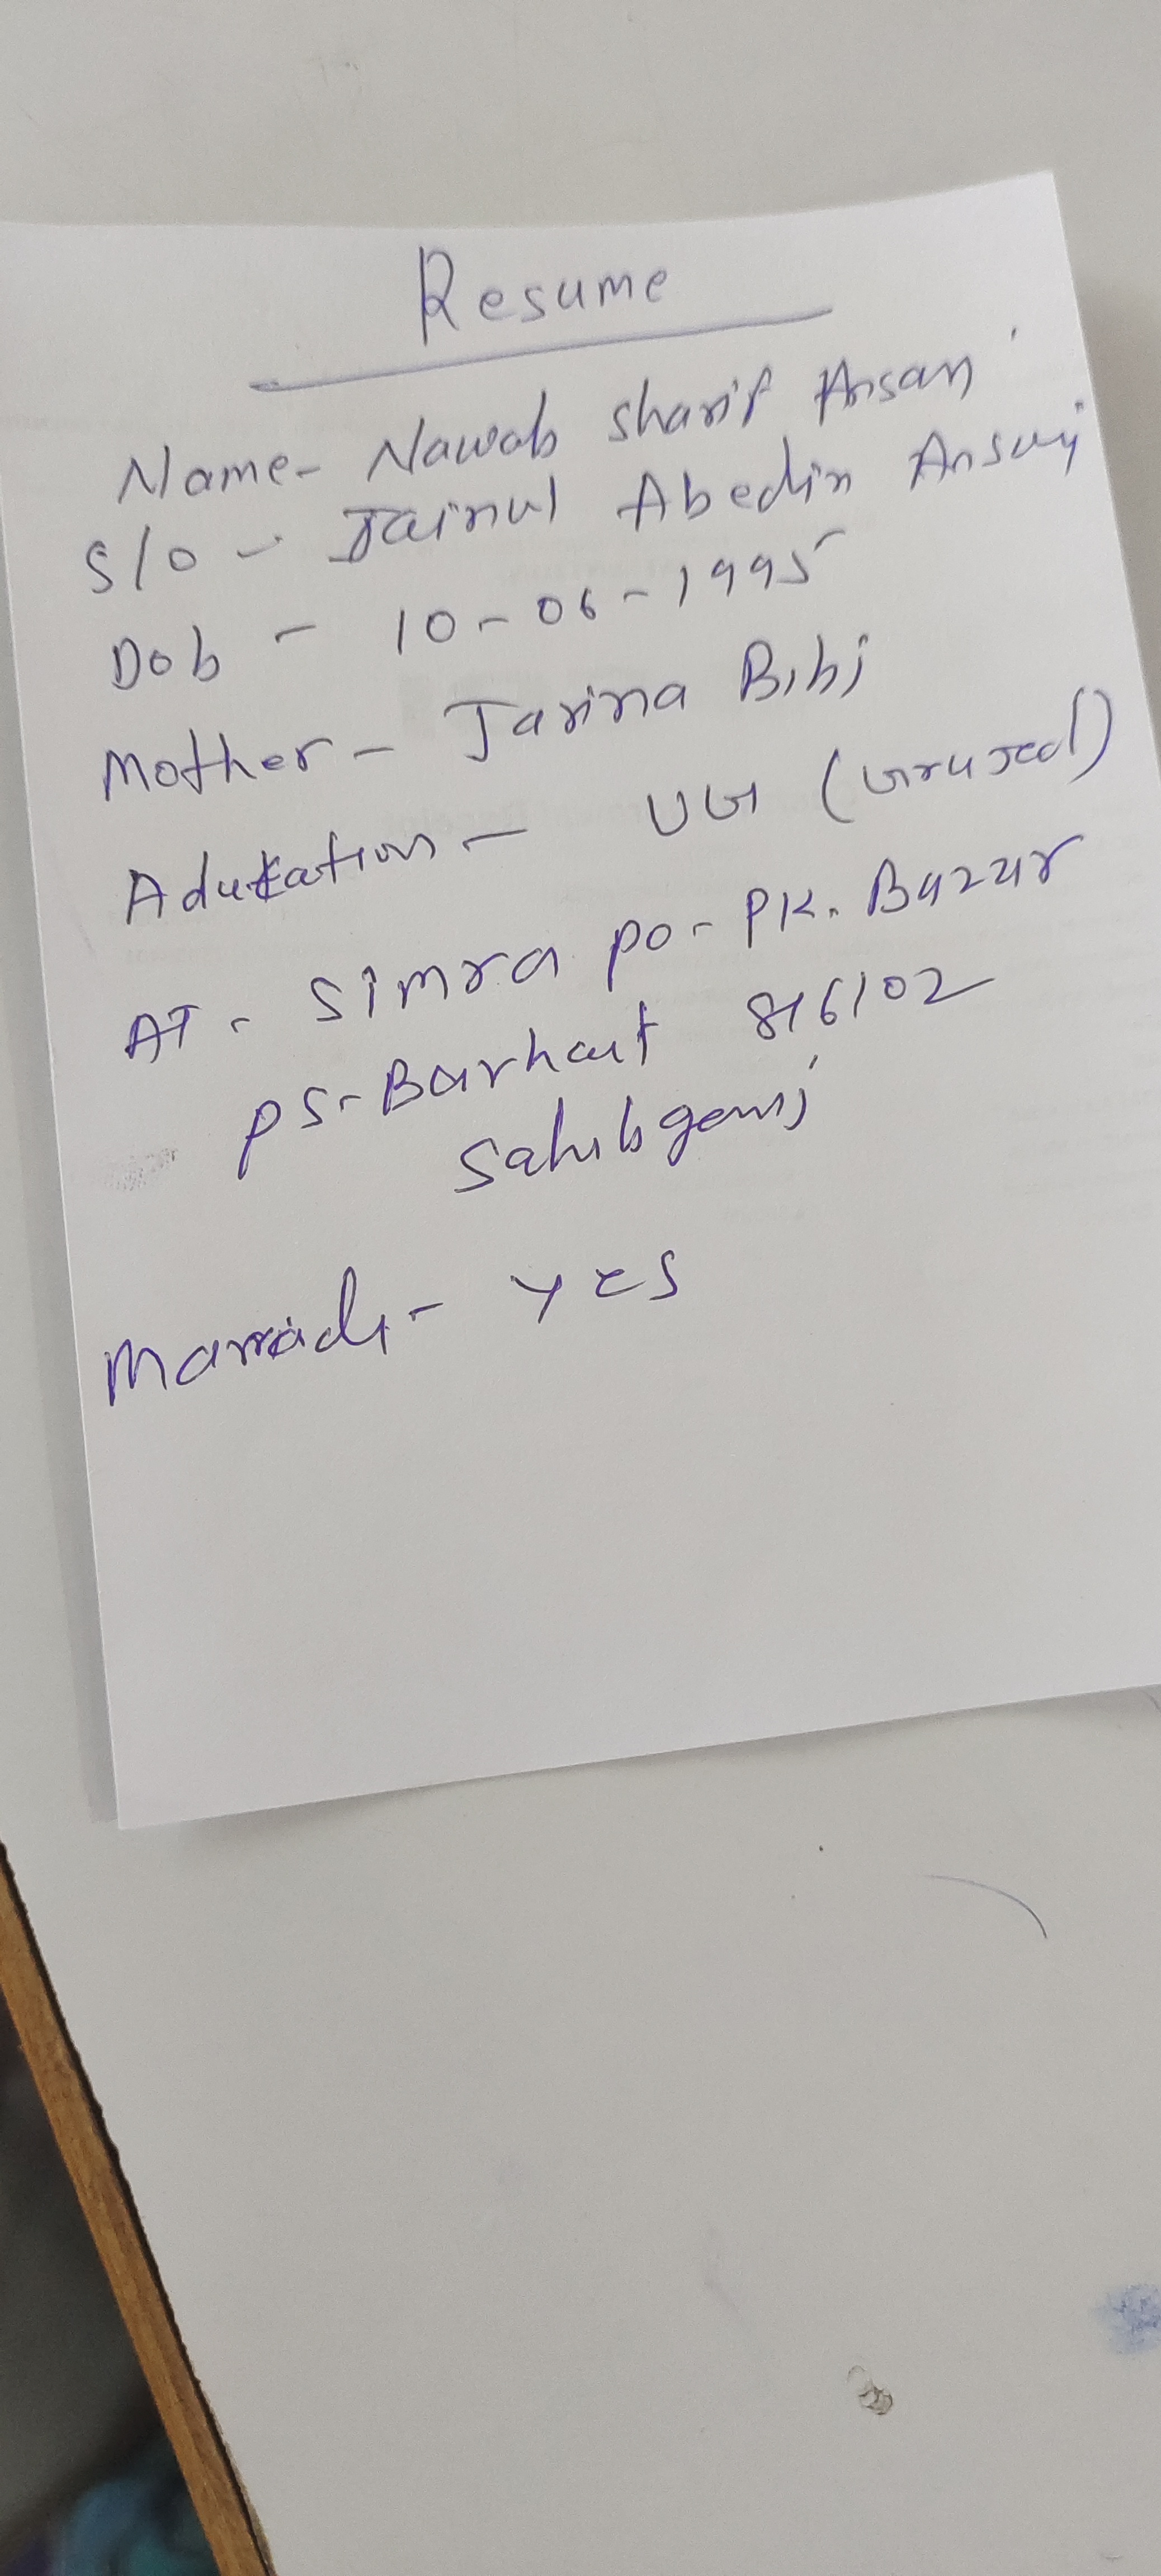 Resume
Name- Nawab Sharif Ansari
S/o - Jainul Abedin Ansari
Dob - 10-06-1995
Mother- Jarina Bibi
Adukation - UG
AT- Simra po- PK. Bazar
PS- Barhait 816102
Sahibganj
- Yes